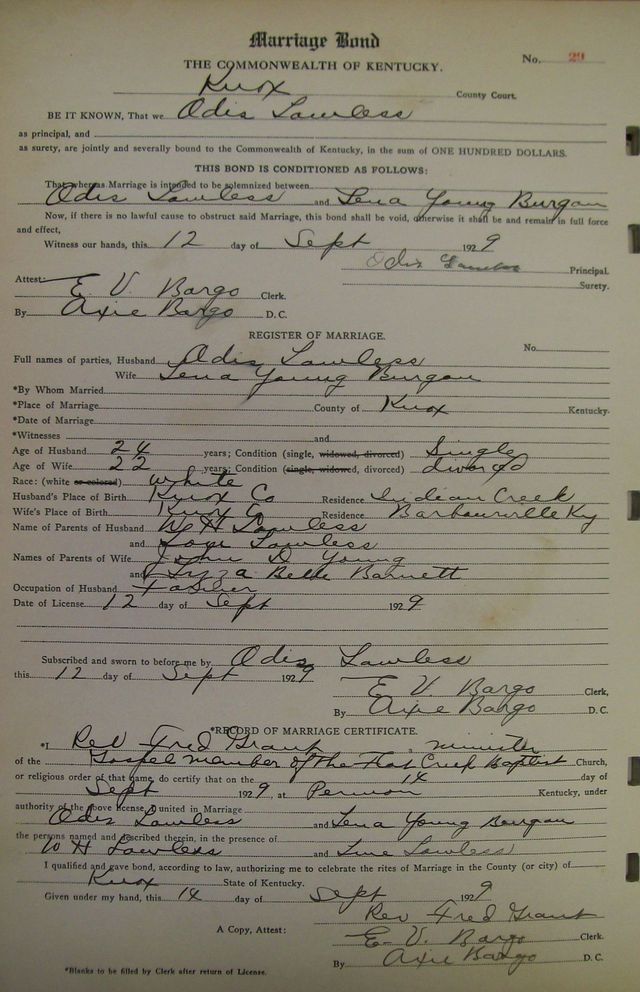 Marriage Bond
No. 29
THE COMMONWEALTH OF KENTUCKY.
Knox County Court.
BE IT KNOWN, That we Odis Lawless
as principal, and
as surety, are jointly and severally bound to the Commonwealth of Kentucky, in the sum of ONE HUNDRED DOLLARS.
THIS BOND IS CONDITIONED AS FOLLOWS:
That whereas Marriage is intended to be solemnized between
Odis Lawless and Lena Young Burgan
Now, if there is no lawful cause to obstruct said Marriage, this bond shall be void, otherwise it shall be and remain in full force
and effect,
Witness our hands, this 12 day of Sept 1929
Odis Lawless Principal.
Surety.
Attest:
E. V. Bargo Clerk.
By Axie Bargo D. C.
REGISTER OF MARRIAGE.
No.
Full names of parties, Husband Odis Lawless
Wife Lena Young Burgan
*By Whom Married
*Place of Marriage County of Knox Kentucky.
*Date of Marriage
*Witnesses and
Age of Husband 24 years; Condition (single, widowed, divorced) Single
Age of Wife 22 years; Condition (single, widowed, divorced) divorced
Race: (white or colored) white
Husband's Place of Birth Knox Co Residence Indian Creek
Wife's Place of Birth Knox Co Residence Barbourville Ky
Name of Parents of Husband W H Lawless
and Lawless
Names of Parents of Wife John D Young
and Lizza Belle Barnett
Occupation of Husband
Date of License 12 day of Sept 1929
Subscribed and sworn to before me by Odis Lawless
this 12 day of Sept 1929
E V Bargo Clerk,
By Axie Bargo D. C.
*RECORD OF MARRIAGE CERTIFICATE.
*I Rev Fred Grant, minister
of the Gospel member of the Flat Creek Baptist Church,
or religious order of that name, do certify that on the 14 day of
Sept 1929, at Permon Kentucky, under
authority of the above license, I united in Marriage
Odis Lawless and Lena Young Burgan
the persons named and described therein, in the presence of
W H Lawless and Lawless
I qualified and gave bond, according to law, authorizing me to celebrate the rites of Marriage in the County (or city) of
Knox State of Kentucky.
Given under my hand, this 14 day of Sept 1929
Rev Fred Grant
A Copy, Attest: E. V. Bargo Clerk.
By Axie Bargo D. C.
*Blanks to be filled by Clerk after return of License.